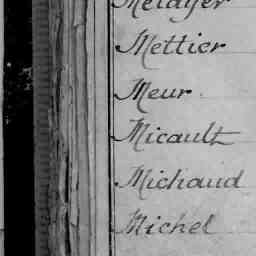 Metayer
Mettier
Meur
Micault
Michaud
Michel